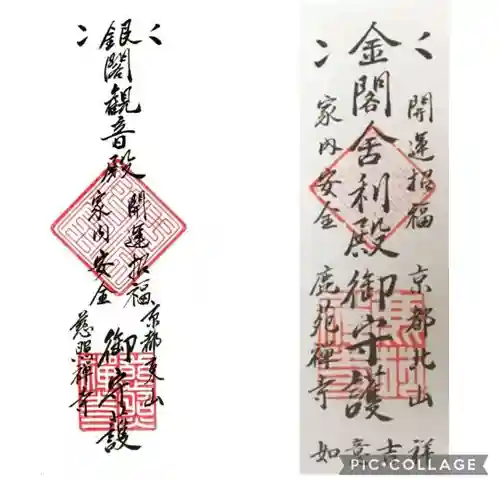 銀閣観音殿 御守護
開運招福
家内安全
京都東山
慈照禅寺
金閣舎利殿 御守護
開運招福
家内安全
京都北山
鹿苑禅寺
如意吉祥
PIC•COLLAGE